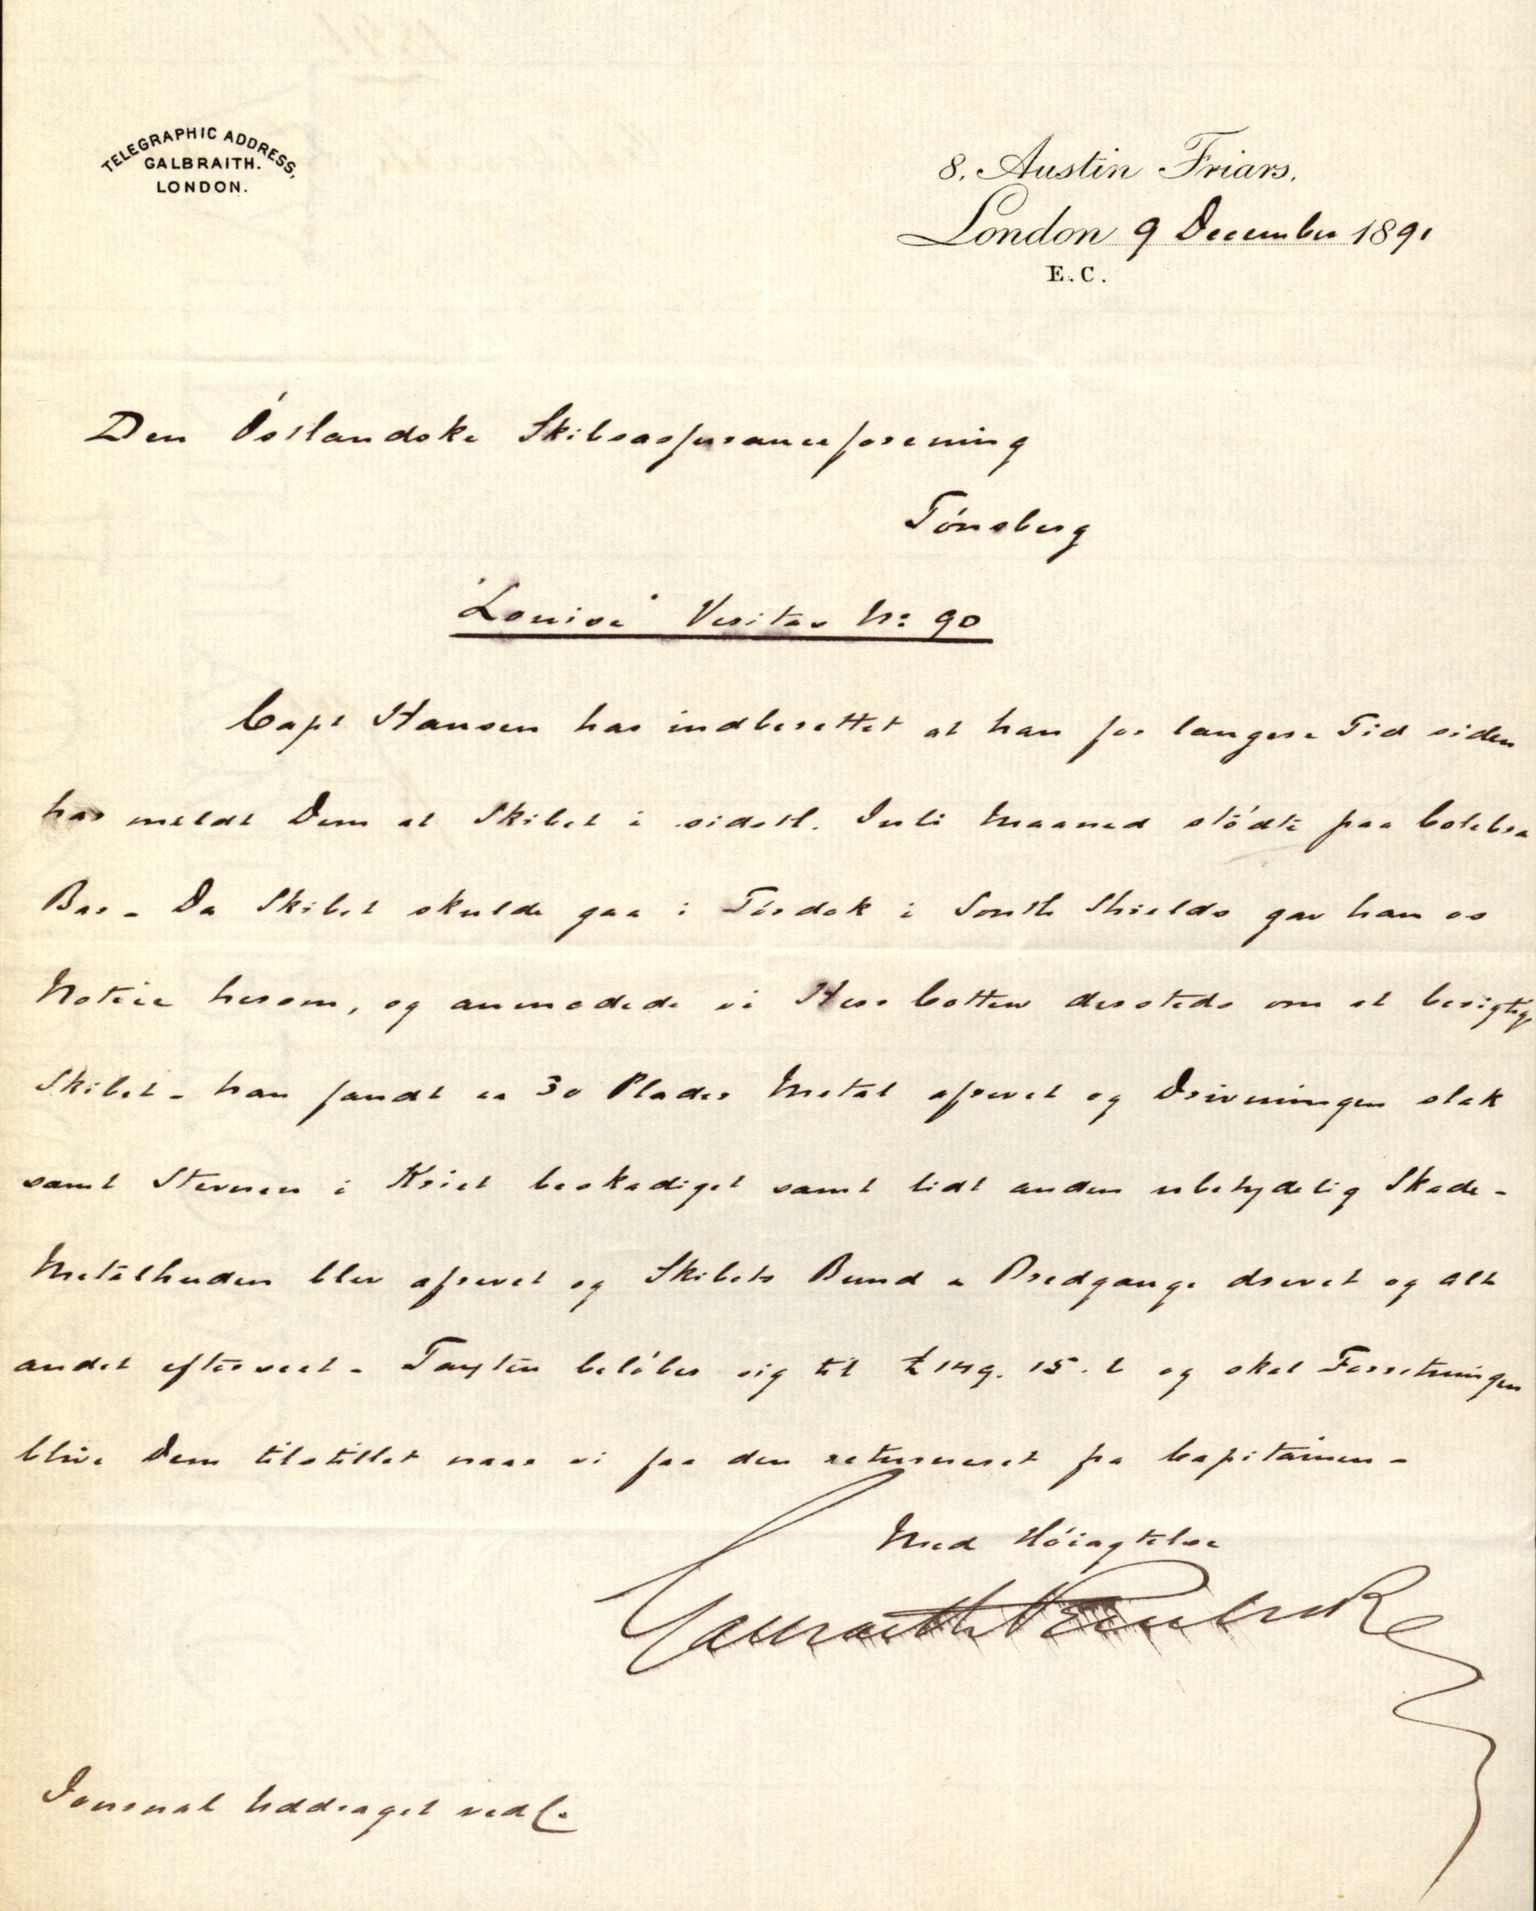 TELEGRAPHIC ADDRESS,
GALBRAITH.
LONDON.
8, Austin Friars,
London 9 December 1891
E.C.
Den Óstlandske Skibsassuranceforening
Tónsberg
"Louise" Veritas No: 90
Capt Hansen har indberettet at han for langere Tid siden
har meldt Dem at Skibet i sidstl. Juli Maaned stódte paa Colebra
Bar - Da Skibet skulde gaa i Tórdok i South Shields gav han os
Notice herom, og anmodede vi Herr Cotten dersteds om at besigtige
Skibet - han fandt ca 30 Plader Metal afrevet og Drivningen slak
samt Stevnen i Kriet beskadiget samt lidt anden ubetydelig Skade -
Metalhuden blev afrevet og Skibets Bund & Bredgange drevet og alt
andet efterseet - Taxten belóber sig til £149. 15. 2 og skal Forretningen
blive Dem tilstillet naar vi faa den returneret fra Capitainen -
Med Hóiagtelse
Galbraith Pembroke
Journal Uddraget vedl.